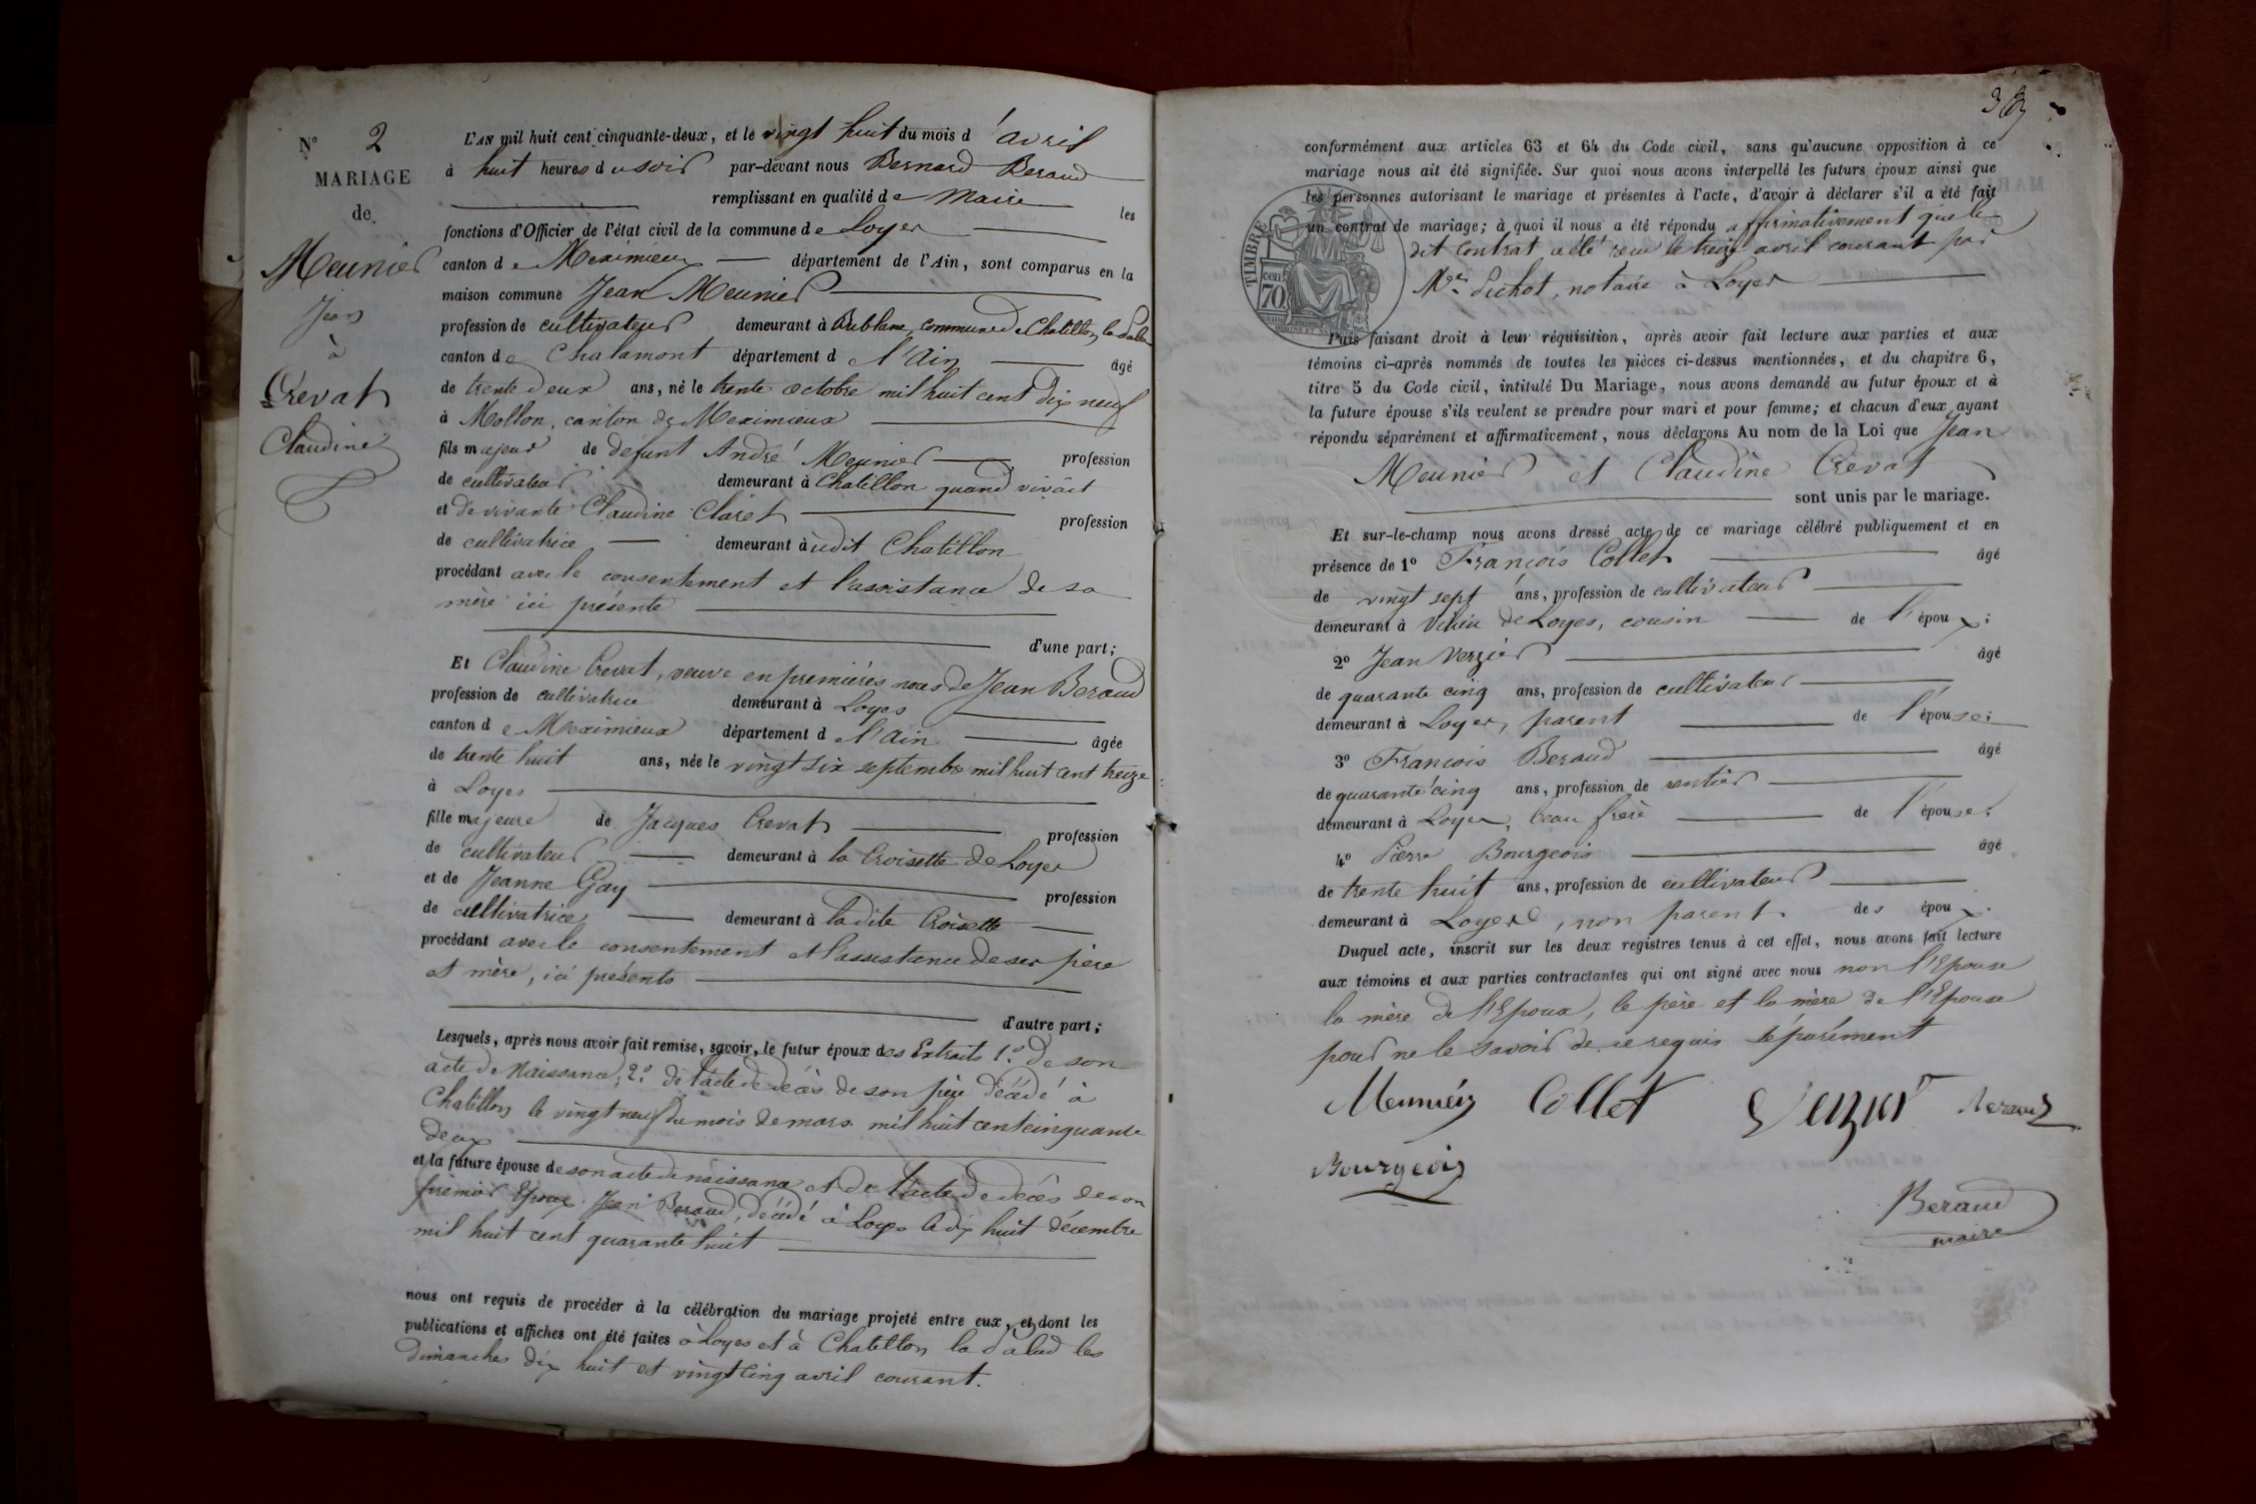 N° 2
MARIAGE
de
Meunier
Jean
à
Crevat
Claudine
L'AN mil huit cent cinquante-deux, et le vingt huit du mois d'avril
à huit heures du soir par-devant nous Bernard Beraud
remplissant en qualité de Maire les
fonctions d'Officier de l'état civil de la commune de Loyes
canton de Meximieux département de l'Ain, sont comparus en la
maison commune Jean Meunier
profession de cultivateur demeurant à commune de Chatillon la Palud
canton de Chalamont département de l'Ain âgé
de trente deux ans, né le trente octobre mil huit cent dix neuf
à Mollon, canton de Meximieux
fils majeur de defunt André Meunier profession
de cultivateur demeurant à Chatillon quand vivait
et de vivante Claudine Claret profession
de cultivatrice demeurant audit Chatillon
procédant avec le consentement et l'assistance de sa
mère ici présente
d'une part;
Et Claudine Crevat, veuve en premières noces de Jean Beraud
profession de cultivatrice demeurant à Loyes
canton de Meximieux département de l'Ain âgée
de trente huit ans, née le vingt six septembre mil huit cent treize
à Loyes
fille majeure de Jacques Crevat profession
de cultivateur demeurant à la Croisette de Loyes
et de Jeanne Gay profession
de cultivatrice demeurant à ladite Croisette
procédant avec le consentement et l'assistance de ses père
et mère, ici présents
d'autre part;
Lesquels, après nous avoir fait remise, savoir, le futur époux des Extraits 1.° de son
acte de Naissance, 2.° de l'acte de décès de son père décédé à
Chatillon le vingt neuf du mois de mars mil huit cent cinquante
deux
et la future épouse de son acte de naissance et de l'acte de décès de son
premier Epoux Jean Beraud, décédé à Loyes le dix huit décembre
mil huit cent quarante huit
nous ont requis de procéder à la célébration du mariage projeté entre eux, et dont les
publications et affiches ont été faites à Loyes et à Chatillon la Palud les
dimanches dix huit et vingt cinq avril courant.
conformément aux articles 63 et 64 du Code civil, sans qu'aucune opposition à ce
mariage nous ait été signifiée. Sur quoi nous avons interpellé les futurs époux ainsi que
les personnes autorisant le mariage et présentes à l'acte, d'avoir à déclarer s'il a été fait
un contrat de mariage; à quoi il nous a été répondu affirmativement que le
dit contrat a été reçu le treize avril courant par
notaire à Loyes
TIMBRE
cen
70
Puis faisant droit à leur réquisition, après avoir fait lecture aux parties et aux
témoins ci-après nommés de toutes les pièces ci-dessus mentionnées, et du chapitre 6,
titre 5 du Code civil, intitulé Du Mariage, nous avons demandé au futur époux et à
la future épouse s'ils veulent se prendre pour mari et pour femme; et chacun d'eux ayant
répondu séparément et affirmativement, nous déclarons Au nom de la Loi que Jean
Meunier et Claudine Crevat
sont unis par le mariage.
Et sur-le-champ nous avons dressé acte de ce mariage célébré publiquement et en
présence de 1° François Collet âgé
de vingt sept ans, profession de cultivateur
demeurant à de Loyes, cousin de l'époux;
2° Jean Verzier âgé
de quarante cinq ans, profession de cultivateur
demeurant à Loyes, parent de l'épouse;
3° François Beraud âgé
de quarante cinq ans, profession de rentier
demeurant à Loyes, beau frère de l'épouse;
4° Pierre Bourgeois âgé
de trente huit ans, profession de cultivateur
demeurant à Loyes, non parent des époux.
Duquel acte, inscrit sur les deux registres tenus à cet effet, nous avons fait lecture
aux témoins et aux parties contractantes qui ont signé avec nous non l'Epouse
la mère de l'Epoux, le père et la mère de l'Epouse
pour ne le savoir de ce requis séparément
Meunier Collet Verzier Beraud
Bourgeois
Beraud
maire